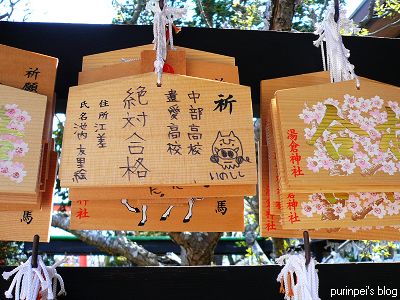 祈願
祈
中部高校
遺愛高校
絶対合格
住所 江差
氏名 池内 友里絵
いのしし
合格
湯倉神社
神社
馬
馬
purinpei's blog